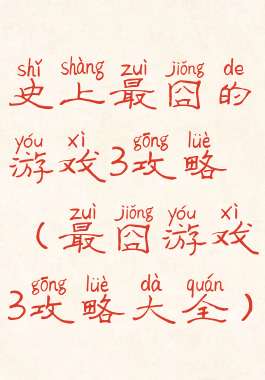 shǐ shàng zuì jiǒng de
史上最囧的
yóu xì gōng lüè
游戏3攻略
zuì jiǒng yóu xì
（最囧游戏
gōng lüè dà quán
3攻略大全）